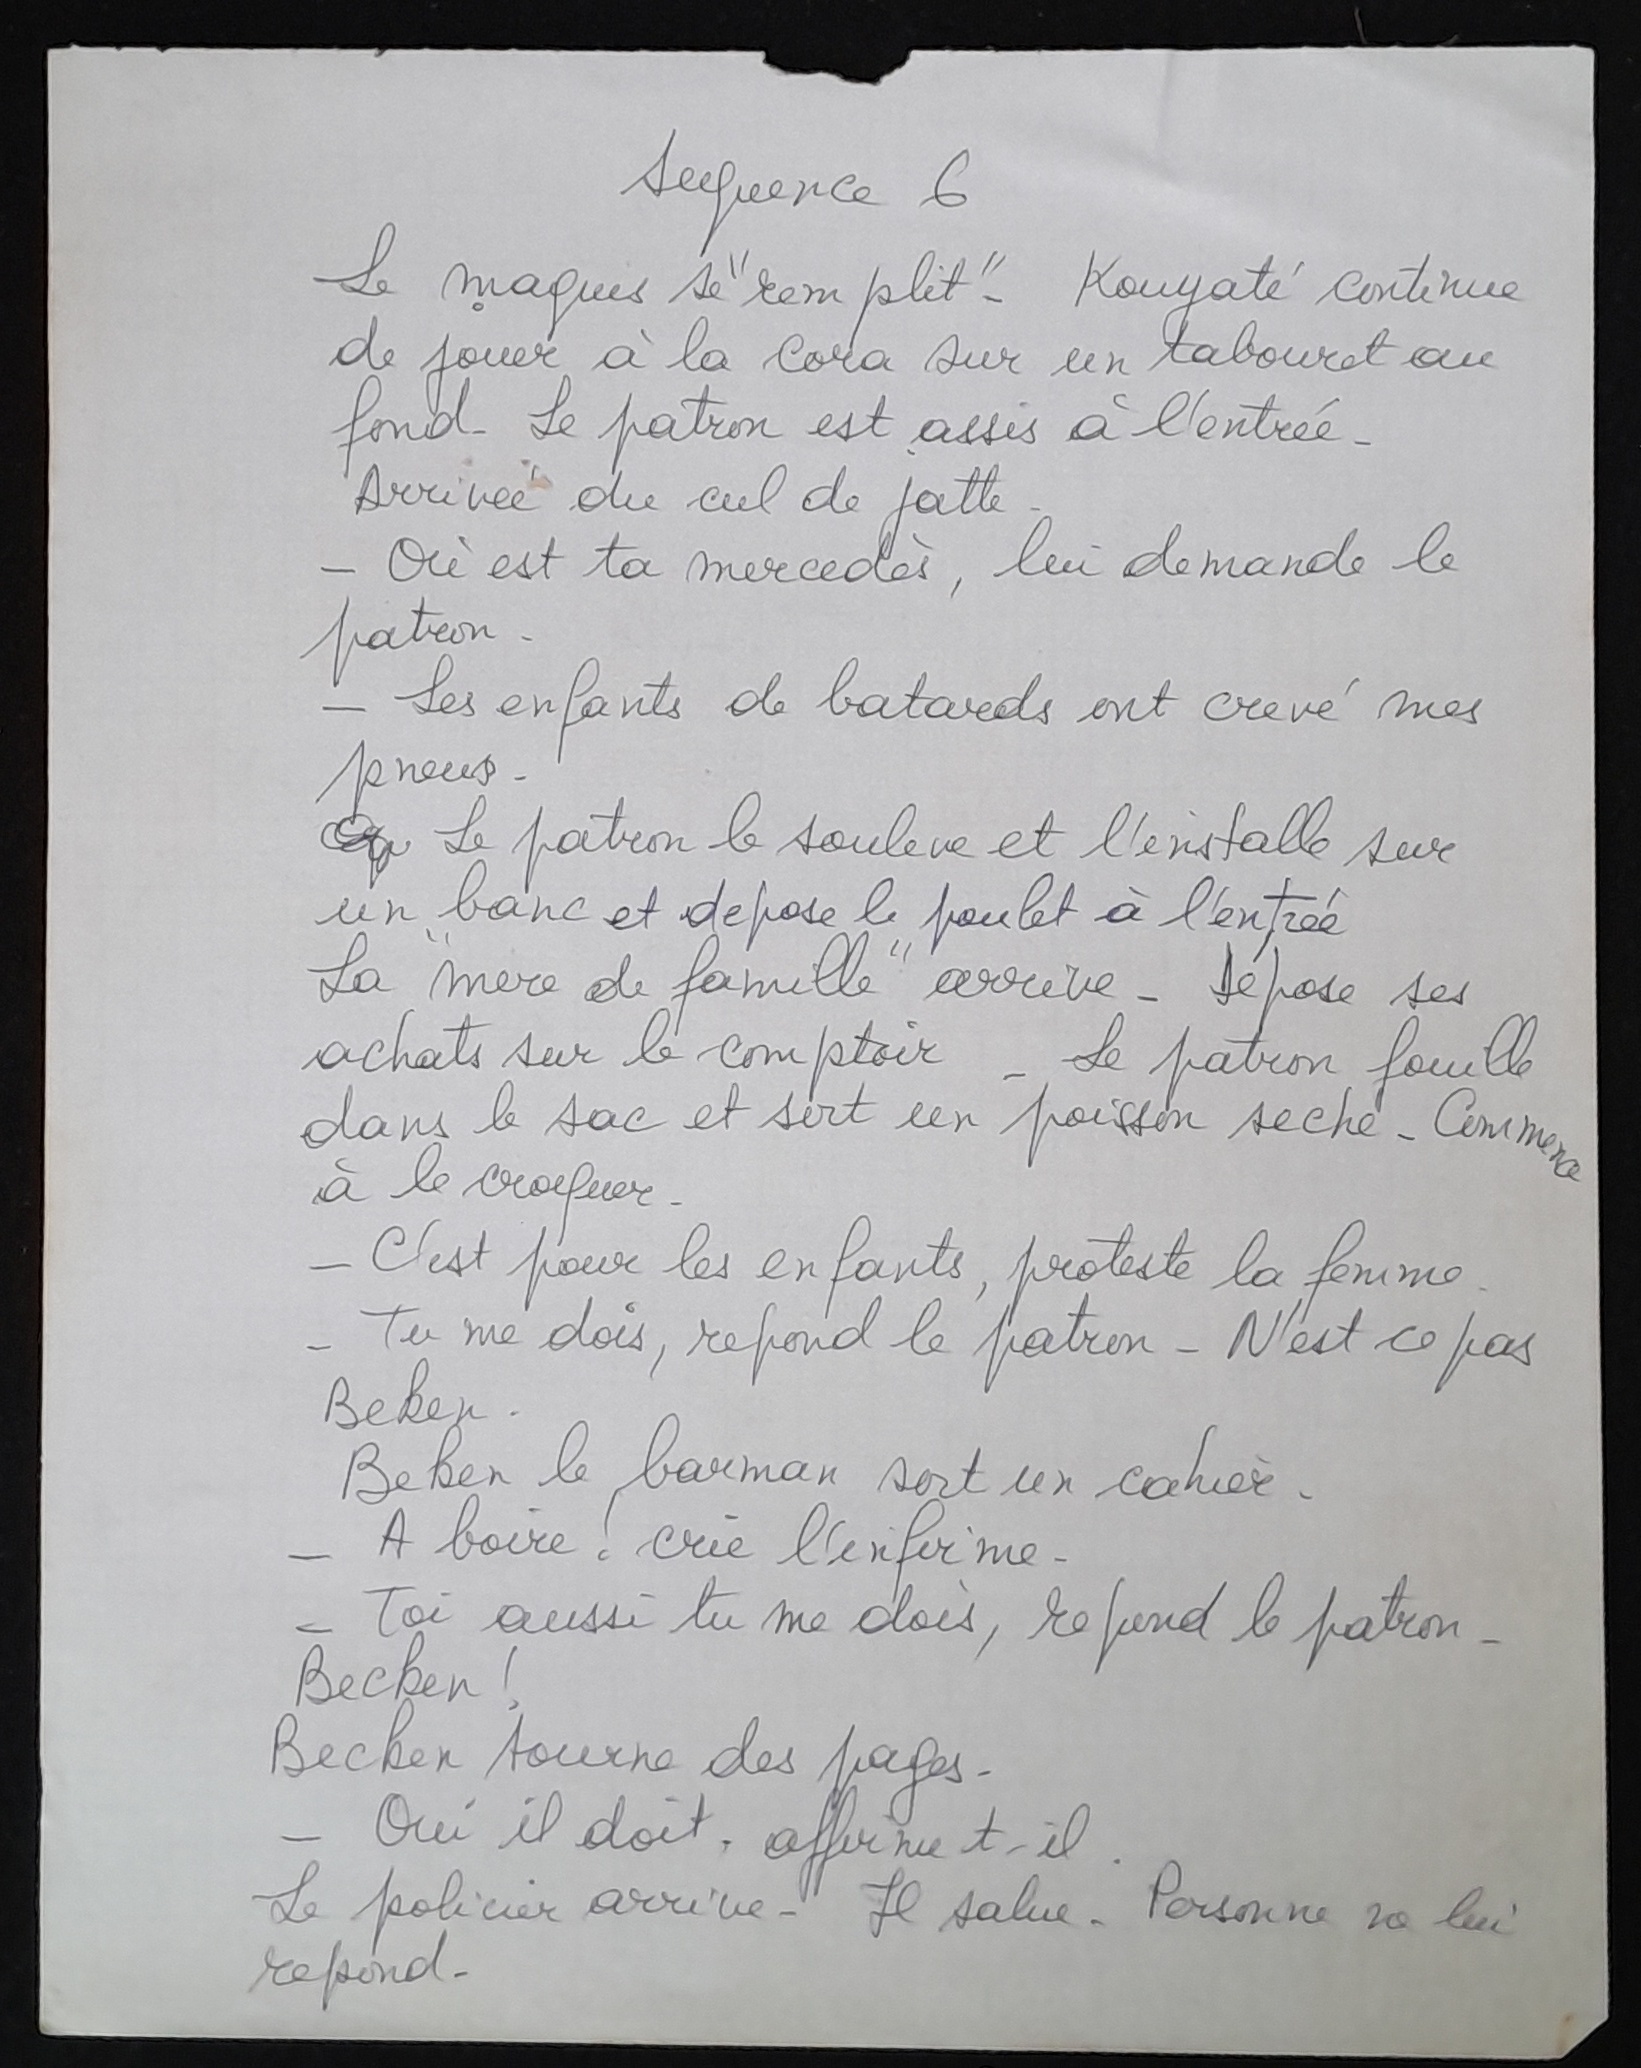 Sequence 6
Le maquis se "remplit" - Kouyaté continue
de jouer à la cora sur un tabouret au
fond - Le patron est assis à l'entrée -
Arrivée du cul de jatte -
- Où est ta mercedès, lui demande le
patron -
- Les enfants de batards ont crevé mes
pneus -
Le patron le souleve et l'installe sur
un banc et depose le poulet à l'entrée
La "mere de famille" arrive - Dépose ses
achats sur le comptoir - Le patron fouille
dans le sac et sort un poisson seché - Commence
à le croquer -
- C'est pour les enfants, proteste la femme.
- Tu me dois, repond le patron - N'est ce pas
Beken.
Beken le barman sort un cahier.
- A boire ! crie l'infirme -
- Toi aussi tu me dois, repond le patron -
Becken !
Becken tourne des pages -
- Oui il doit, affirme t-il.
Le policier arrive - Il salue - Personne ne lui
repond -